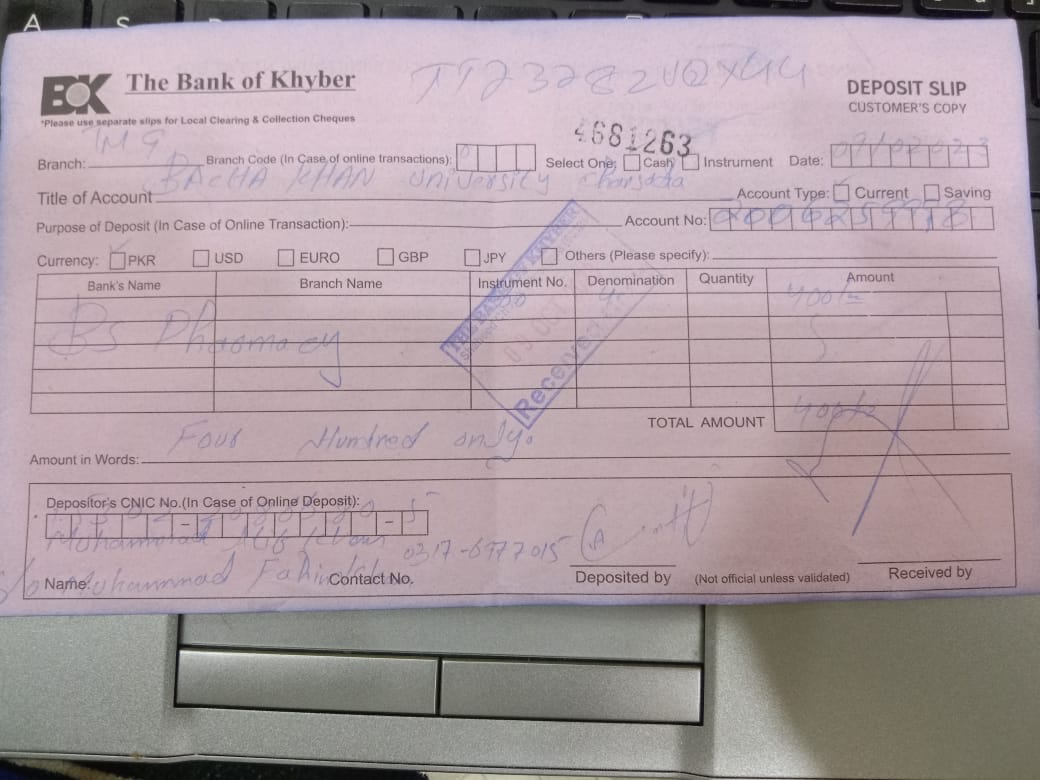 A S
BOK The Bank of Khyber
TT23282UQX44
DEPOSIT SLIP
CUSTOMER'S COPY
*Please use separate slips for Local Clearing & Collection Cheques
4681263
Branch: Branch Code (In Case of online transactions): Select One: Cash Instrument Date:
Title of Account BACHA KHAN University Charsadda
Account Type: Current Saving
Purpose of Deposit (In Case of Online Transaction): Account No:
Currency: PKR USD EURO GBP JPY Others (Please specify):
Bank's Name Branch Name Instrument No. Denomination Quantity Amount
400/=
THE BANK OF KHYBER
Received
Bs Pharmacy
TOTAL AMOUNT 400/=
Amount in Words: Four Hundred only.
Depositor's CNIC No.(In Case of Online Deposit):
Muhammad
0317-6977015
Name: s/o Muhammad Contact No. Deposited by (Not official unless validated) Received by